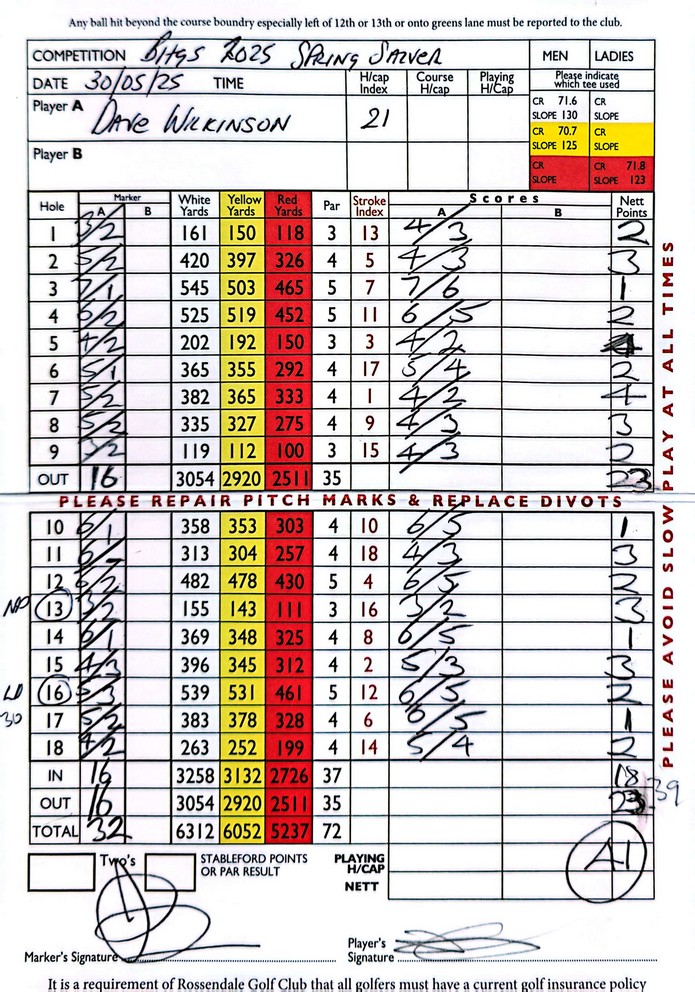 Any ball hit beyond the course boundry especially left of 12th or 13th or onto greens lane must be reported to the club.
COMPETITION BHGS 2025 SPRING SALVER MEN LADIES
DATE 30/05/25 TIME H/cap Index Course H/cap Playing H/Cap Please indicate which tee used
Player A DAVE WILKINSON 21
CR 71.6 SLOPE 130 CR SLOPE
CR 70.7 SLOPE 125 CR SLOPE
Player B
CR SLOPE CR 71.8 SLOPE 123
Hole Marker A B White Yards Yellow Yards Red Yards Par Stroke Index Scores A B Nett Points
1 3/2 161 150 118 3 13 4/3 2
2 5/2 420 397 326 4 5 4/3 3
3 7/1 545 503 465 5 7 7/6 1
4 6/2 525 519 452 5 11 6/5 2
5 4/2 202 192 150 3 3 4/2
6 5/1 365 355 292 4 17 5/4 2
7 5/2 382 365 333 4 1 4/2 4
8 5/2 335 327 275 4 9 4/3 3
9 3/2 119 112 100 3 15 4/3 2
OUT 16 3054 2920 2511 35 23
PLEASE REPAIR PITCH MARKS & REPLACE DIVOTS
10 6/1 358 353 303 4 10 6/5 1
11 6/- 313 304 257 4 18 4/3 3
12 6/2 482 478 430 5 4 6/5 2
NP 13 3/2 155 143 111 3 16 3/2 3
14 6/1 369 348 325 4 8 6/5 1
15 4/3 396 345 312 4 2 5/3 3
LD 16 5/3 539 531 461 5 12 6/5 2
30 17 5/2 383 378 328 4 6 6/5 1
18 4/2 263 252 199 4 14 5/4 2
IN 16 3258 3132 2726 37 18
OUT 16 3054 2920 2511 35 23 39
TOTAL 32 6312 6052 5237 72
41
Two's STABLEFORD POINTS OR PAR RESULT PLAYING H/CAP
NETT
Marker's Signature Player's Signature
It is a requirement of Rossendale Golf Club that all golfers must have a current golf insurance policy
PLEASE AVOID SLOW PLAY AT ALL TIMES